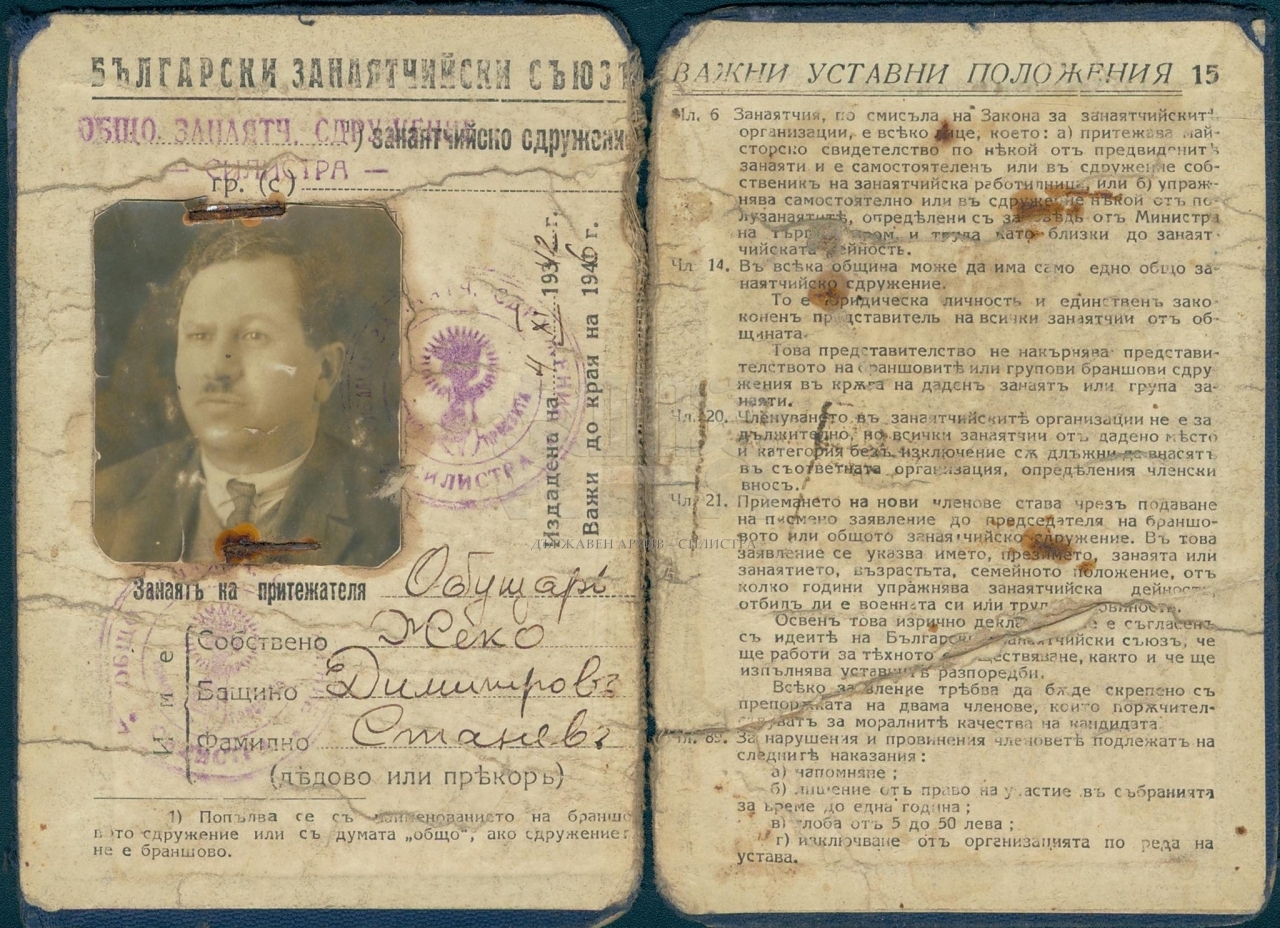 БЪЛГАРСКИ ЗАНАЯТЧИЙСКИ СЪЮЗЪ
ОБЩО ЗАНАЯТЧ. СДРУЖЕНИЕ
1) занаятчийско сдружение
— СИЛИСТРА —
гр. (с)
Издадена на 4 XI 1942 г.
Важи до края на 1946 г.
СИЛИСТРА
ДЪРЖАВЕН АРХИВ - СИЛИСТРА
Занаятъ на притежателя Обущарь
Име
Собствено Жеко
Бащино Димитровъ
Фамилно Станевъ
(дѣдово или прѣкоръ)
1) Попълва се съ наименованието на браншо
вото сдружение или съ думата „общо“, ако сдружение
не е браншово.
ВАЖНИ УСТАВНИ ПОЛОЖЕНИЯ 15
Чл. 6 Занаятчия, по смисъла на Закона за занаятчийскитѣ
организации, е всѣко лице, което: а) притежава май-
сторско свидетелство по нѣкой отъ предвиденитѣ
занаяти и е самостоятеленъ или въ сдружение соб-
ственикъ на занаятчийска работилница, или б) упраж-
нява самостоятелно или въ сдружение нѣкой отъ по-
лузанаятитѣ, опредѣлени съ заповѣдь отъ Министра
на търг. пром. и труда като близки до занаят-
чийската дейность.
Чл. 14. Въ всѣка община може да има само едно общо за-
наятчийско сдружение.
То е юридическа личность и единственъ зако-
коненъ представитель на всички занаятчии отъ об-
щината.
Това представителство не накърнява представи-
телството на браншовитѣ или групови браншови сдру
жения въ крѫга на даденъ занаятъ или група за-
наяти.
Чл. 20. Членуването въ занаятчийскитѣ организации не е за
дължително, но всички занаятчии отъ дадено мѣсто
и категория безъ изключение сѫ длъжни да внасятъ
въ съответната организация, опредѣления членски
вносъ.
Чл. 21. Приемането на нови членове става чрезъ подаване
на писмено заявление до председателя на браншо-
вото или общото занаятчийско сдружение. Въ това
заявление се указва името, презимето, занаята или
занаятието, възрастьта, семейното положение, отъ
колко години упражнява занаятчийска дейность,
отбилъ ли е военната си или труд. повинность.
Освенъ това изрично декла е съгласенъ
съ идеитѣ на Български занаятчийски съюзъ, че
ще работи за тѣхното осѫществяване, както и че ще
изпълнява уставнитѣ разпоредби.
Всѣко заявление трѣбва да бѫде скрепено съ
препорѫката на двама членове, които порѫчител-
ствуватъ за моралнитѣ качества на кандидата.
Чл. 89. За нарушения и провинения членоветѣ подлежатъ на
следнитѣ наказания:
а) напомняне;
б) лишение отъ право на участие въ събранията
за време до една година;
в) глоба отъ 5 до 50 лева;
г) изключване отъ организацията по реда на
устава.